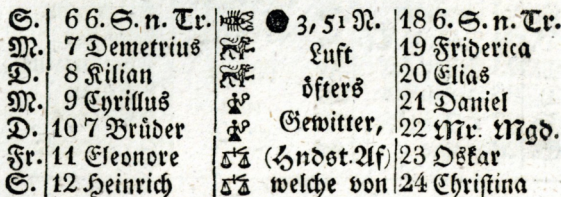 S. 6 6. S. n. Tr. ● 3, 51 N. 18 6. S. n. Tr.
M. 7 Demetrius Luft 19 Friderica
D. 8 Kilian öfters 20 Elias
M. 9 Cyrillus 21 Daniel
D. 10 7 Brüder Gewitter, 22 Mr. Mgd.
Fr. 11 Eleonore (Hndst. Af) 23 Oskar
S. 12 Heinrich welche von 24 Christina